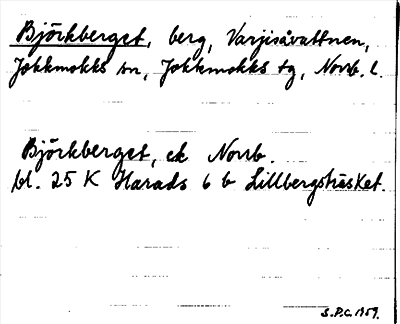 Björkberget, berg, Varjisåvattnen,
Jokkmokks sn, Jokkmokks tg, Norrb. l.
Björkberget, ek Norrb.
bl. 25 K Harads 6 b Lillbergsträsket.
S.P.C. 1959.